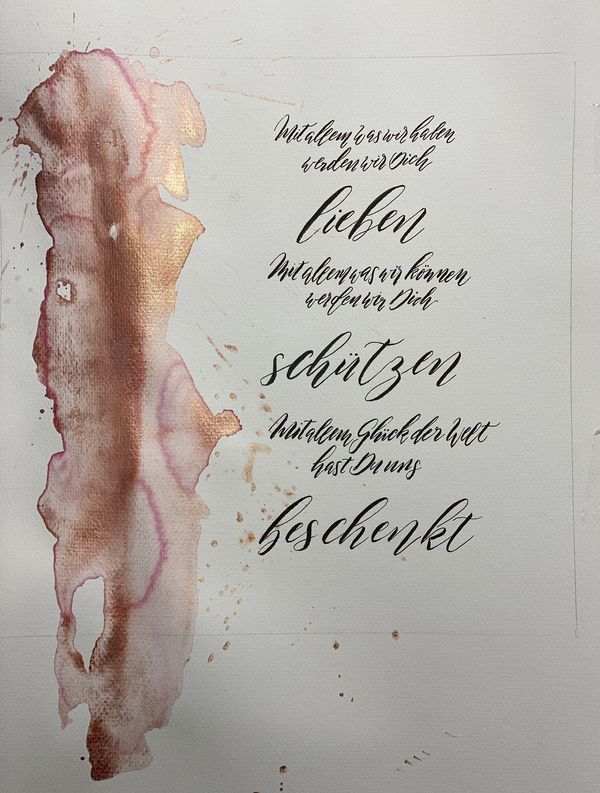 Mit allem was wir haben
werden wir Dich
lieben
Mit allem was wir können
werden wir Dich
schützen
Mit allem Glück der Welt
hast Du uns
beschenkt